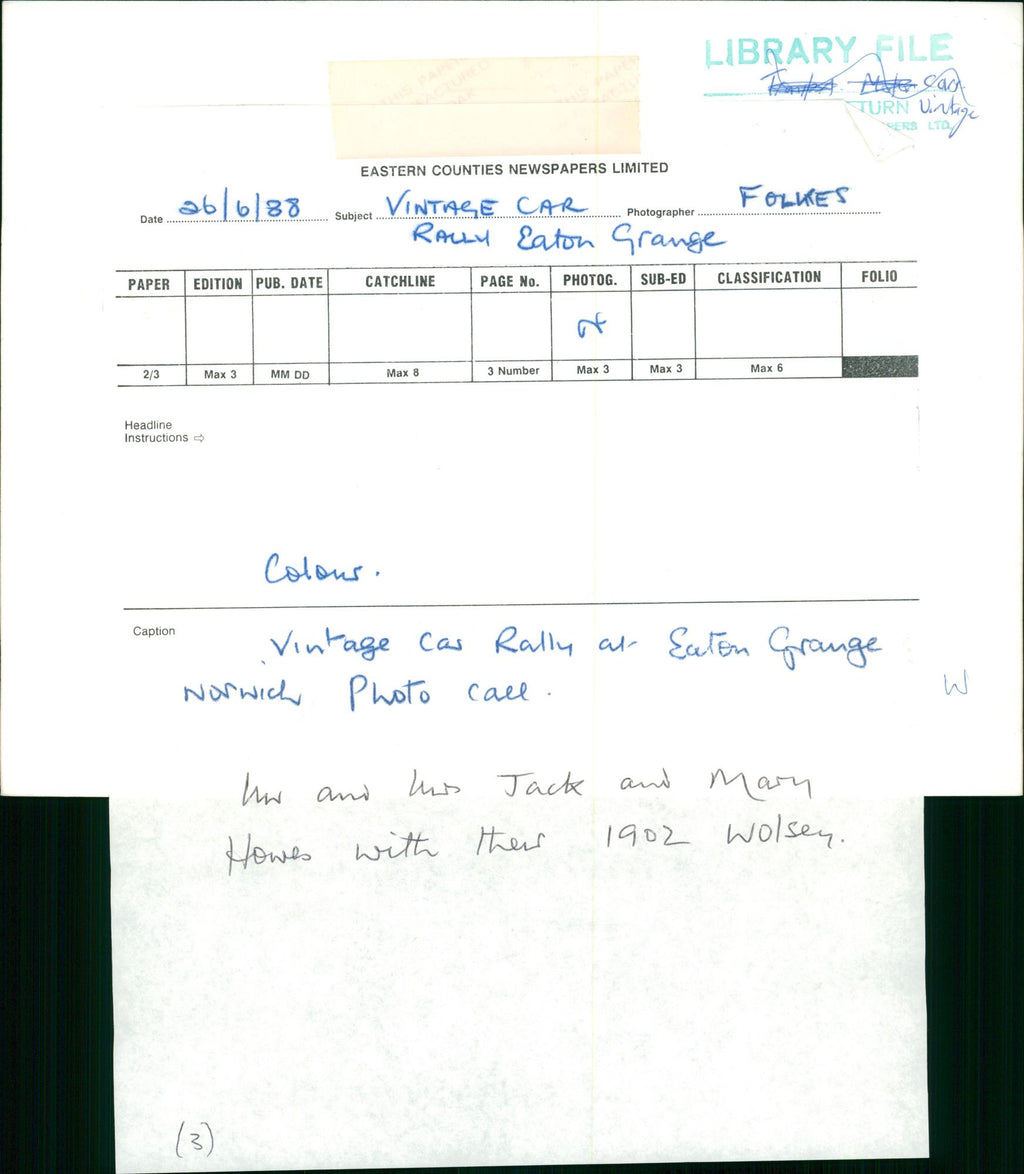 LIBRARY FILE
Cars
TURN Vintage
PERS LTD
THIS PAPER
MANUFACTURED
EASTERN COUNTIES NEWSPAPERS LIMITED
Date 26/6/88 Subject VINTAGE CAR Photographer FOLKES
RALLY Eaton Grange
PAPER EDITION PUB. DATE CATCHLINE PAGE No. PHOTOG. SUB-ED CLASSIFICATION FOLIO
2/3 Max 3 MM DD Max 8 3 Number Max 3 Max 3 Max 6
Headline
Instructions ⇨
Colour.
Caption Vintage Car Rally at Eaton Grange
Norwich Photo call.
W
Mr and Mrs Jack and Mary
Howes with their 1902 Wolsey.
(3)